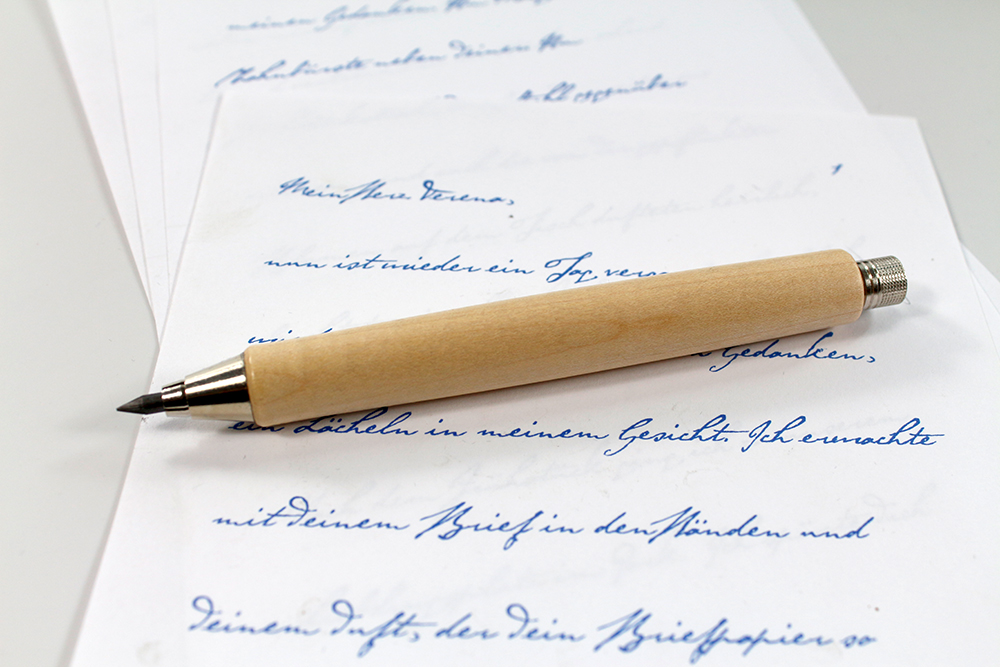 meinen Gedanken
Zahnbürste neben deinen
gegenüber
1
Verena,
nun ist wieder ein Tag
Gedanken,
ein Lächeln in meinem Gesicht. Ich erwachte
mit deinem Brief in den Händen und
deinem Duft, der dein Briefpapier so